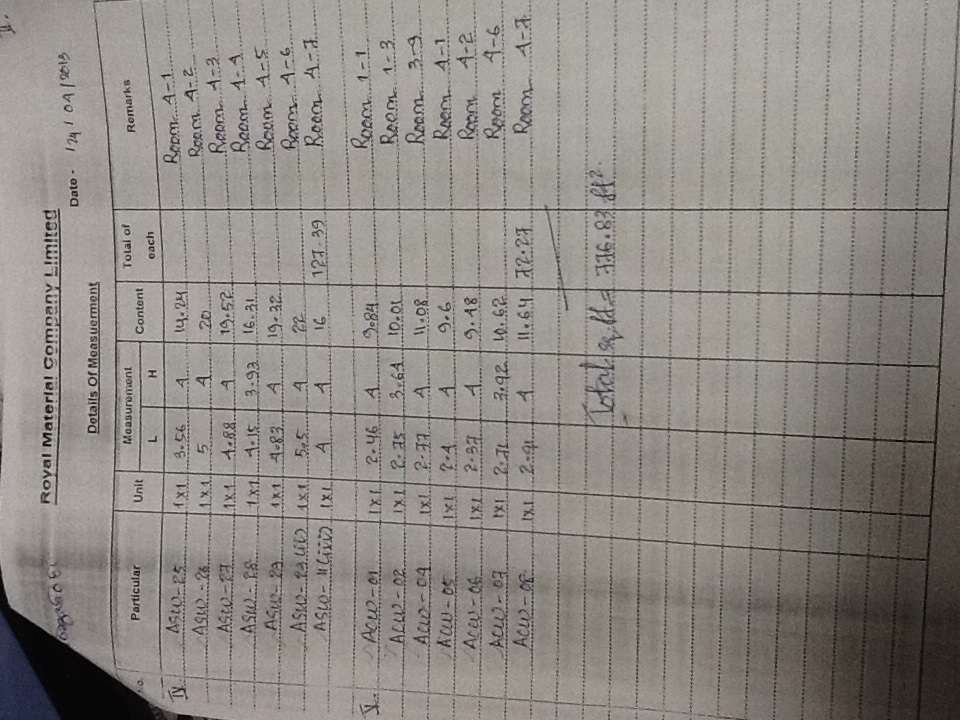 II.
Royal Material Company Limited
Date - 24 / 04 / 2013
Details Of Measuerment
No. Particular Unit Measurement L H Content Total of each Remarks
IV. ASW-25 1x1 3.56 4 14.24 Room 4-1
ASW-26 1x1 5 4 20 Room 4-2
ASW-27 1x1 4.88 4 19.52 Room 4-3
ASW-28 1x1 4.15 3.93 16.31 Room 4-4
ASW-29 1x1 4.83 4 19.32 Room 4-5
ASW-29(ii) 1x1 5.5 4 22 Room 4-6
ASW-11(iii) 1x1 4 4 16 127.39 Room 4-7
V. ACW-01 1x1 2.46 4 9.84 Room 1-1
ACW-02 1x1 2.75 3.64 10.01 Room 1-3
ACW-04 1x1 2.77 4 11.08 Room 3-9
ACW-05 1x1 2.4 4 9.6 Room 4-1
ACW-06 1x1 2.37 4 9.48 Room 4-2
ACW-07 1x1 2.71 3.92 10.62 Room 4-6
ACW-08 1x1 2.91 4 11.64 72.27 Room 4-7
Total sq.ft = 776.83 ft².